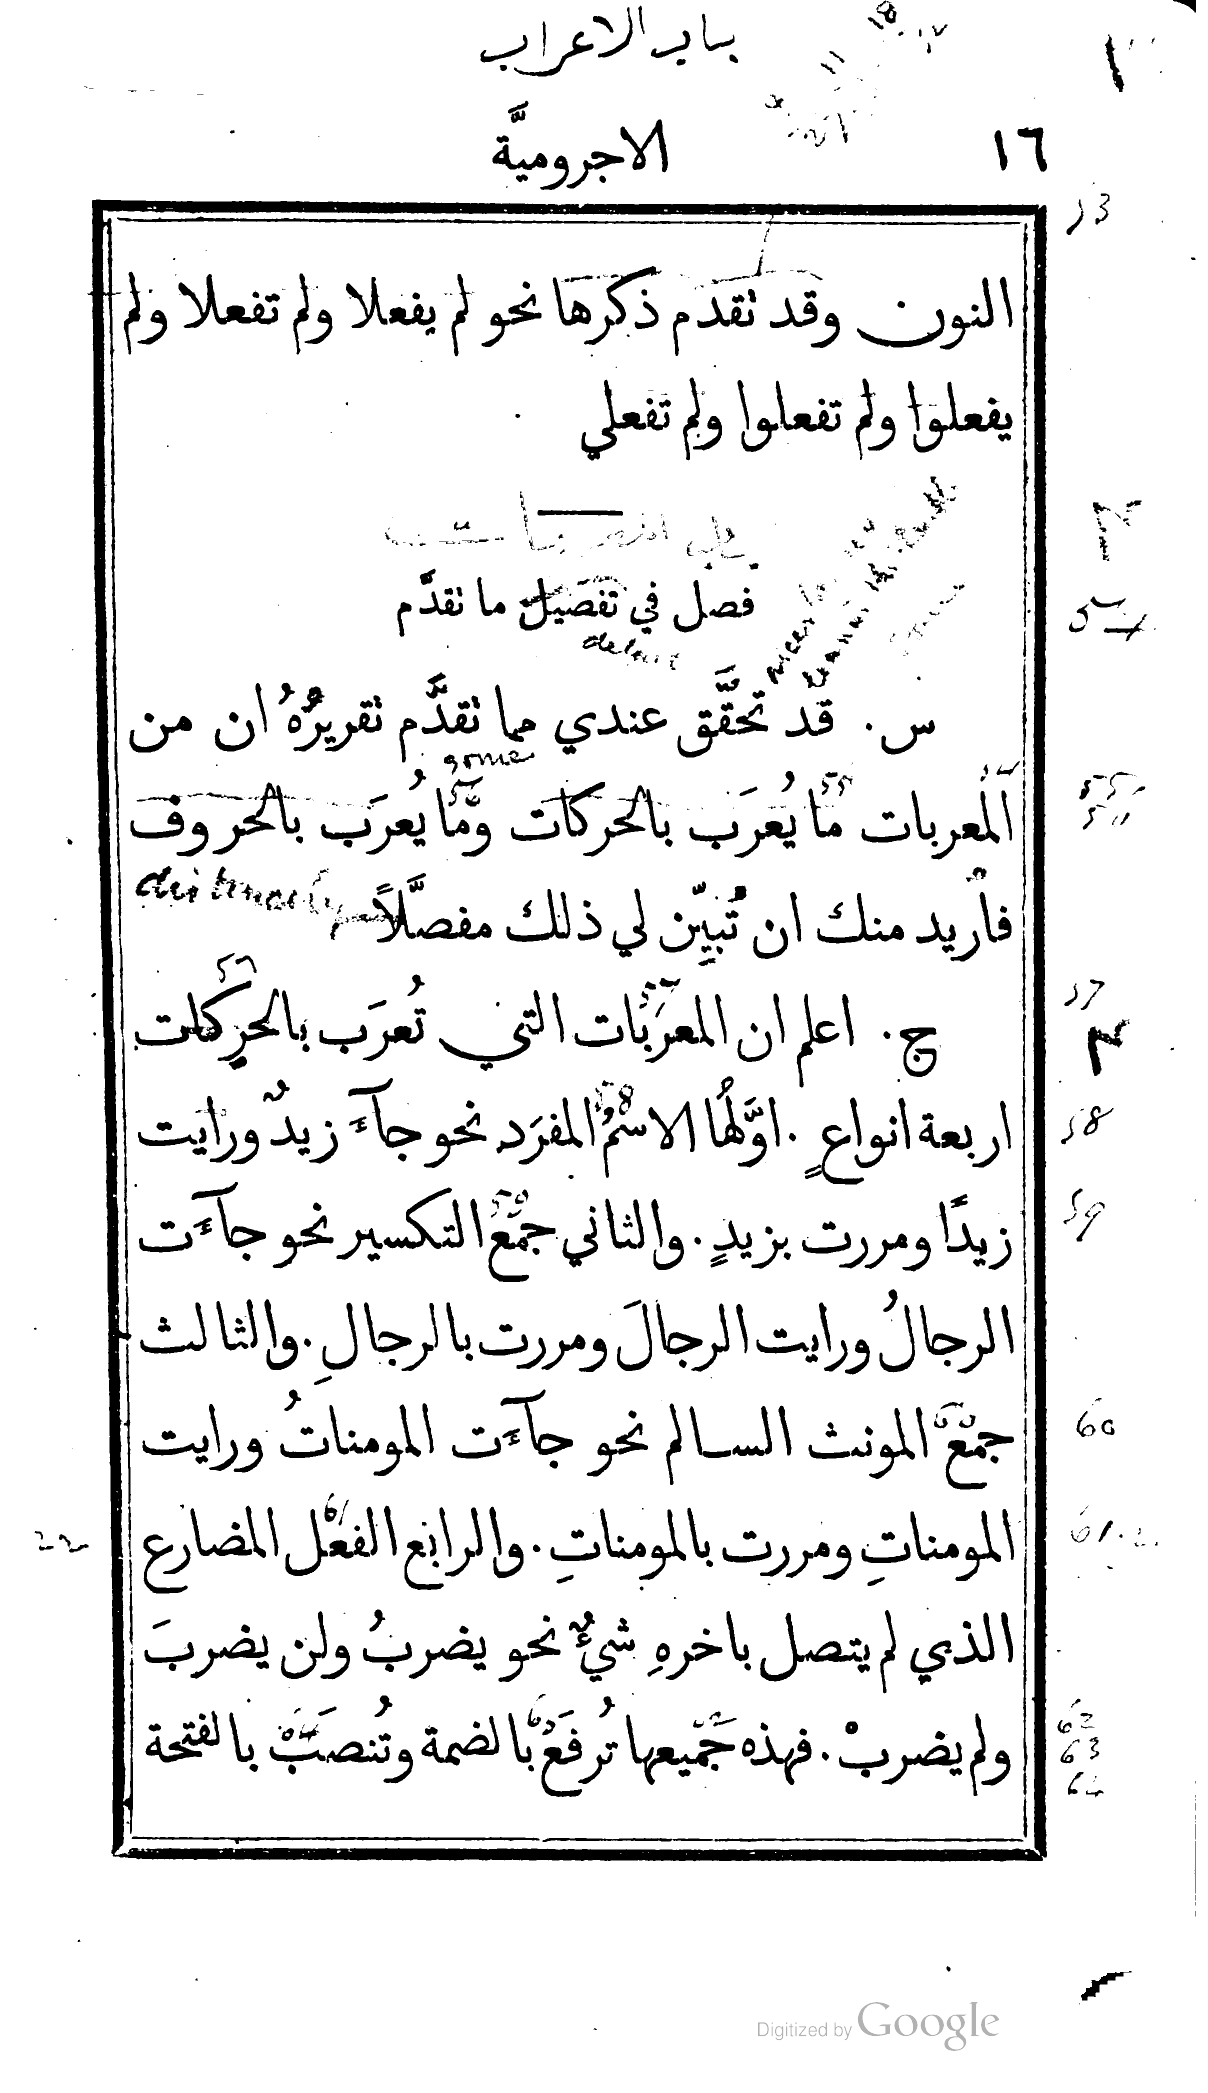 باب الاعراب
١٦ الاجروميَّة
53
النون وقد تقدم ذكرها نحو لم يفعلا ولم تفعلا ولم
يفعلوا ولم تفعلوا ولم تفعلي
فصل في تفصيل ما تقدَّم
س. قد تحقَّق عندي مما تقدَّم تقريرُهُ ان من
المعربات ما يُعرَب بالحركات وما يُعرَب بالحروف
فاريد منك ان تُبيِّن لي ذلك مفصَّلاً
ج. اعلم ان المعرَبات التي تُعرَب بالحركات 57
اربعة انواعٍ. اوَّلُها الاسمُ المفرَد نحو جآءَ زيدٌ ورايت 58
زيدًا ومررت بزيدٍ. والثاني جمعُ التكسير نحو جآءَت 59
الرجالُ ورايت الرجالَ ومررت بالرجالِ. والثالث
جمعُ المونث السالم نحو جآءَت المومناتُ ورايت 60
المومناتِ ومررت بالمومناتِ. والرابع الفعل المضارع 61
الذي لم يتصل باخرهِ شيءٌ نحو يضربُ ولن يضربَ
ولم يضربْ. فهذه جَميعها تُرفَعُ بالضمة وتُنصَبُ بالفتحة
62
63
64
Digitized by Google